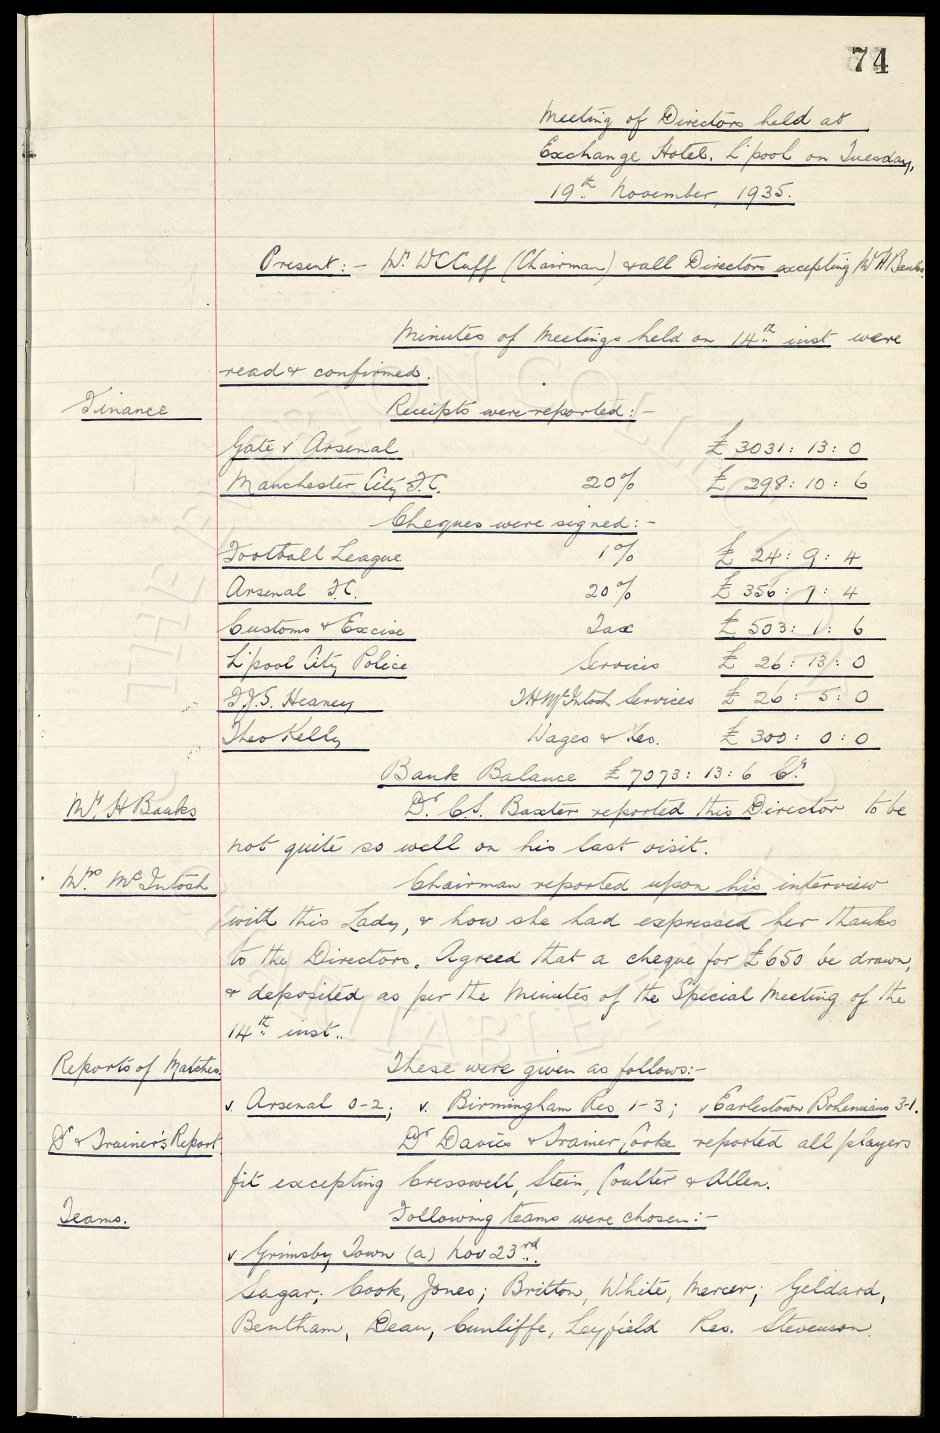 74
Meeting of Directors held at
Exchange Hotel, L'pool on Tuesday,
19th November, 1935.
Present:- Mr. W C Cuff (Chairman) & all Directors excepting Mr H Banks
Minutes of Meetings held on 14th inst were
read & confirmed.
Finance Receipts were reported:-
Gate v Arsenal £ 3031: 13: 0
Manchester City F.C. 20% £ 298: 10: 6
Cheques were signed:-
Football League 1% £ 24: 9: 4
Arsenal F.C. 20% £ 356: 9: 4
Customs & Excise Tax £ 503: 1: 6
L'pool City Police Services £ 26: 13: 0
F.J.S. Heaney J H McIntosh Services £ 26: 5: 0
Theo Kelly Wages & Xes. £ 300: 0: 0
Bank Balance £ 7073: 13: 6 Cr.
Mr. H Banks Dr. C S. Baxter reported this Director to be
not quite so well on his last visit.
Mrs McIntosh Chairman reported upon his interview
with this Lady, & how she had expressed her thanks
to the Directors. Agreed that a cheque for £650 be drawn,
& deposited as per the Minutes of the Special Meeting of the
14th inst..
Reports of Matches. These were given as follows:-
v. Arsenal 0-2; v. Birmingham Res 1-3; v Earlestown Bohemians 3-1.
Dr & Trainer's Report Dr Davies & Trainer Cooke reported all players
fit excepting Cresswell, Stein, Coulter & Allen.
Teams. Following teams were chosen:-
v Grimsby Town (a) Nov 23rd.
Sagar; Cook, Jones; Britton, White, Mercer; Geldard,
Bentham, Dean, Cunliffe, Leyfield Res. Stevenson.
THE EVERTON COLLECTION